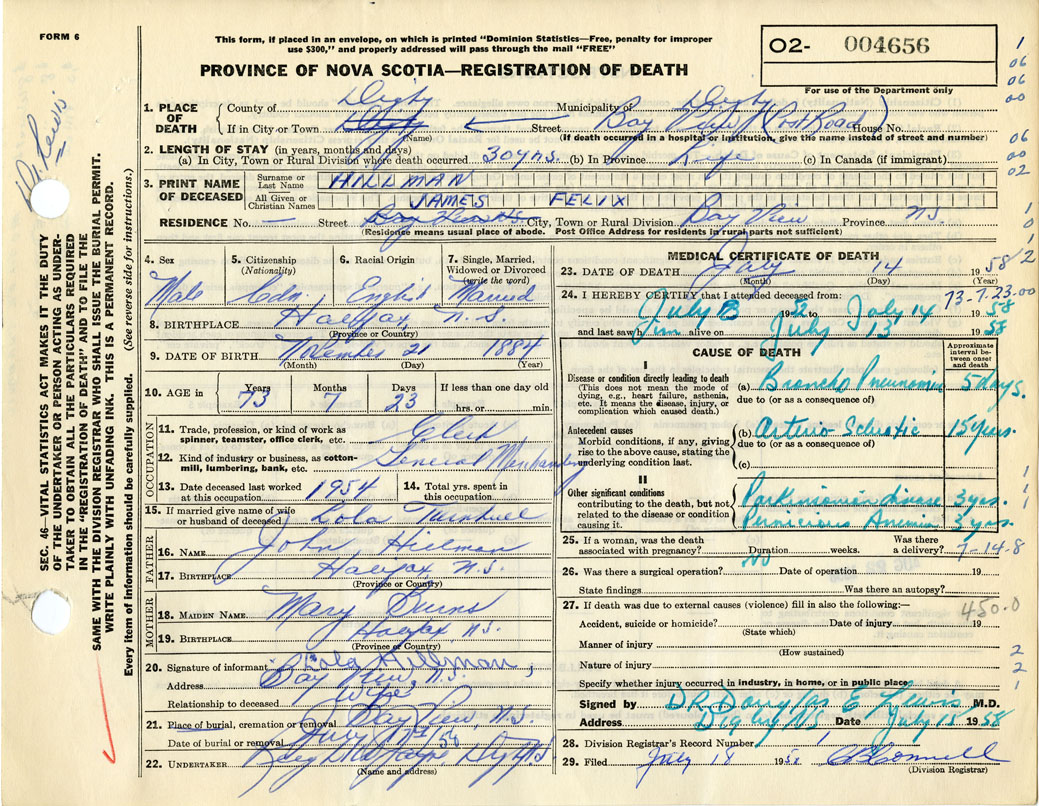 FORM 6
This form, if placed in an envelope, on which is printed "Dominion Statistics—Free, penalty for improper
use $300," and properly addressed will pass through the mail "FREE"
PROVINCE OF NOVA SCOTIA—REGISTRATION OF DEATH
O2- 004656
For use of the Department only
1
06
06
00
06
00
02
1
0
1
2
Dr. Lewis
SEC. 46 VITAL STATISTICS ACT MAKES IT THE DUTY
OF THE UNDERTAKER OR PERSON ACTING AS UNDER-
TAKER TO OBTAIN ALL THE PARTICULARS REQUIRED
IN THE "REGISTRATION OF DEATH" AND TO FILE THE
SAME WITH THE DIVISION REGISTRAR WHO SHALL ISSUE THE BURIAL PERMIT.
WRITE PLAINLY WITH UNFADING INK. THIS IS A PERMANENT RECORD.
Every item of information should be carefully supplied. (See reverse side for instructions.)
1. PLACE OF DEATH
County of Digby Municipality of Digby
If in City or Town Digby Street Bay View (Post Road) House No.
(Name) (If death occurred in a hospital or institution, give the name instead of street and number)
2. LENGTH OF STAY (in years, months and days)
(a) In City, Town or Rural Division where death occurred 30 yrs. (b) In Province Life (c) In Canada (if immigrant)
3. PRINT NAME OF DECEASED
Surname or Last Name HILLMAN
All Given or Christian Names JAMES FELIX
RESIDENCE No. — Street City, Town or Rural Division Bay View Province N.S.
(Residence means usual place of abode. Post Office Address for residents in rural parts not sufficient)
4. Sex
Male
5. Citizenship
(Nationality)
Cdn.
6. Racial Origin
English
7. Single, Married,
Widowed or Divorced
(write the word)
Married
8. BIRTHPLACE Halifax, N.S.
(Province or Country)
9. DATE OF BIRTH November 21 1884
(Month) (Day) (Year)
10. AGE in
Years Months Days If less than one day old
73 7 23 hrs. or min.
OCCUPATION
11. Trade, profession, or kind of work as
spinner, teamster, office clerk, etc. Clerk
12. Kind of industry or business, as cotton-
mill, lumbering, bank, etc. General
13. Date deceased last worked
at this occupation 1954
14. Total yrs. spent in
this occupation
15. If married give name of wife
or husband of deceased Lola
FATHER
16. NAME John Hillman
17. BIRTHPLACE Halifax N.S.
(Province or Country)
MOTHER
18. MAIDEN NAME Mary Burns
19. BIRTHPLACE Halifax, N.S.
(Province or Country)
20. Signature of informant Lola Hillman,
Address Bay View, N.S.
Relationship to deceased Wife
21. Place of burial, cremation or removal Bay View N.S.
Date of burial or removal July
22. UNDERTAKER
(Name and address)
MEDICAL CERTIFICATE OF DEATH
23. DATE OF DEATH July 14 1958
(Month) (Day) (Year)
73-7.23.00
24. I HEREBY CERTIFY that I attended deceased from:
July 13 19 to July 14 1958
and last saw him alive on July 13 1958
CAUSE OF DEATH
Approximate
interval be-
tween onset
and death
I
Disease or condition directly leading to death
(This does not mean the mode of
dying, e.g., heart failure, asthenia,
etc. It means the disease, injury, or
complication which caused death.)
(a) Broncho Pneumonia 5 days.
due to (or as a consequence of)
Antecedent causes
Morbid conditions, if any, giving
rise to the above cause, stating the
underlying condition last.
(b) Arterio-Sclrotic 15 years.
due to (or as a consequence of)
(c)
II
Other significant conditions
contributing to the death, but not
related to the disease or condition
causing it.
Parkinsonian disease 3 yrs.
Pernicious Anemia 3 yrs.
1
1
1
25. If a woman, was the death
associated with pregnancy? Duration weeks. Was there
a delivery?
7-14-8
26. Was there a surgical operation? NO Date of operation 19
State findings Was there an autopsy?
27. If death was due to external causes (violence) fill in also the following:—
450.0
Accident, suicide or homicide? Date of injury 19
(State which)
Manner of injury
(How sustained)
Nature of injury
Specify whether injury occurred in industry, in home, or in public place
2
2
1
Signed by DR. Douglas E Lewis M.D.
Address Digby NS Date July 15 1958
28. Division Registrar's Record Number 1
29. Filed July 18 1958
(Division Registrar)